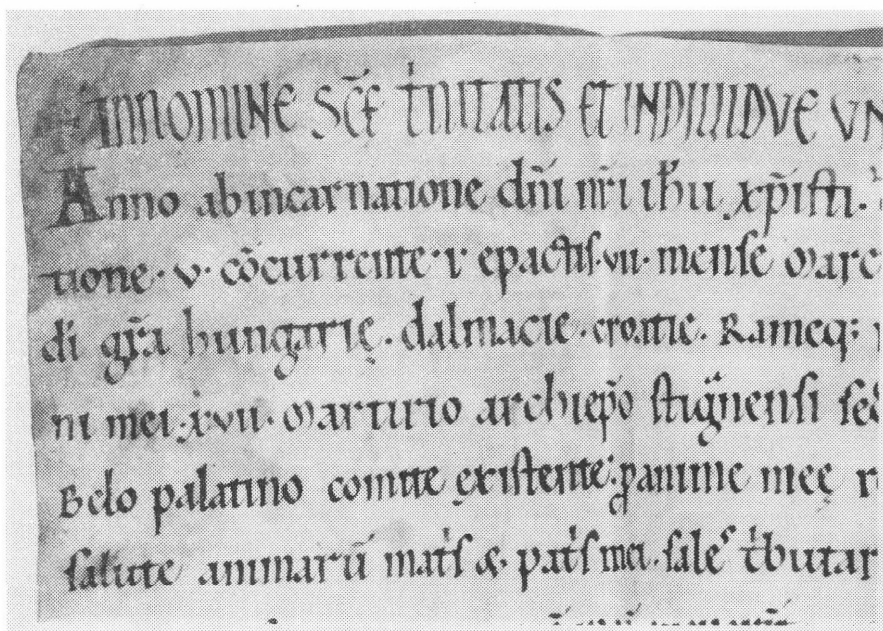 IN NOMINE SC̄E TͥNITATIS ET INDIUIDVE VN
Anno ab incarnatione dn̄i nr̄i ih̄u xp̄isti.
tione · v · cōcurrente · r epactis · vii · mense Marc
di gr̄a hungarię · dalmacie · croatie · Rameq;
ni mei · xvii · Martirio archiep̄o strig̃nensi sed
Belo palatino comite existente: ꝓ anime meę r
salute animarū mat̄s & pat̄s mei · sales tͥbutar